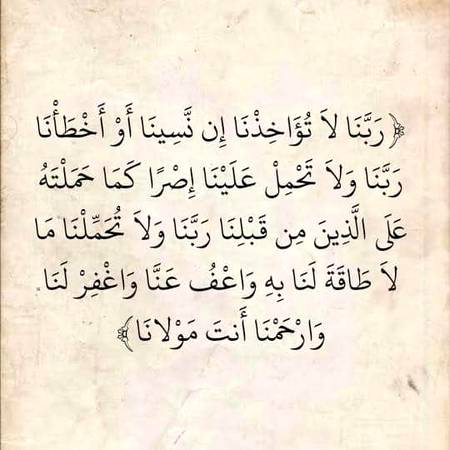 ﴿رَبَّنَا لاَ تُؤَاخِذْنَا إِن نَّسِينَا أَوْ أَخْطَأْنَا
رَبَّنَا وَلاَ تَحْمِلْ عَلَيْنَا إِصْرًا كَمَا حَمَلْتَهُ
عَلَى الَّذِينَ مِن قَبْلِنَا رَبَّنَا وَلاَ تُحَمِّلْنَا مَا
لاَ طَاقَةَ لَنَا بِهِ وَاعْفُ عَنَّا وَاغْفِرْ لَنَا
وَارْحَمْنَا أَنتَ مَوْلاَنَا﴾